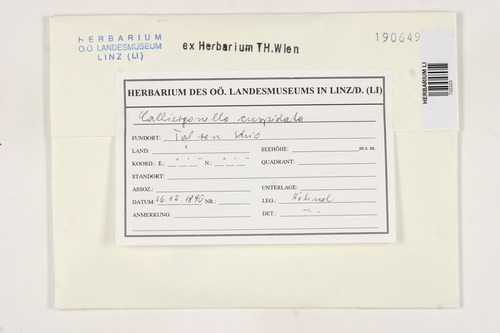 HERBARIUM
OÖ LANDESMUSEUM
LINZ (LI)
ex Herbarium TH.Wien
190649
HERBARIUM LI
HERBARIUM DES OÖ. LANDESMUSEUMS IN LINZ/D. (LI)
Calliergonella cuspidata
FUNDORT: Tal von Schio
LAND: ? SEEHÖHE: m s. m.
KOORD.: E.: ° ' " N.: ° ' " QUADRANT:
STANDORT:
ASSOZ.: UNTERLAGE:
DATUM: 26.12.1890 NR.: LEG.: Höhnel
ANMERKUNG: DET.: -"-